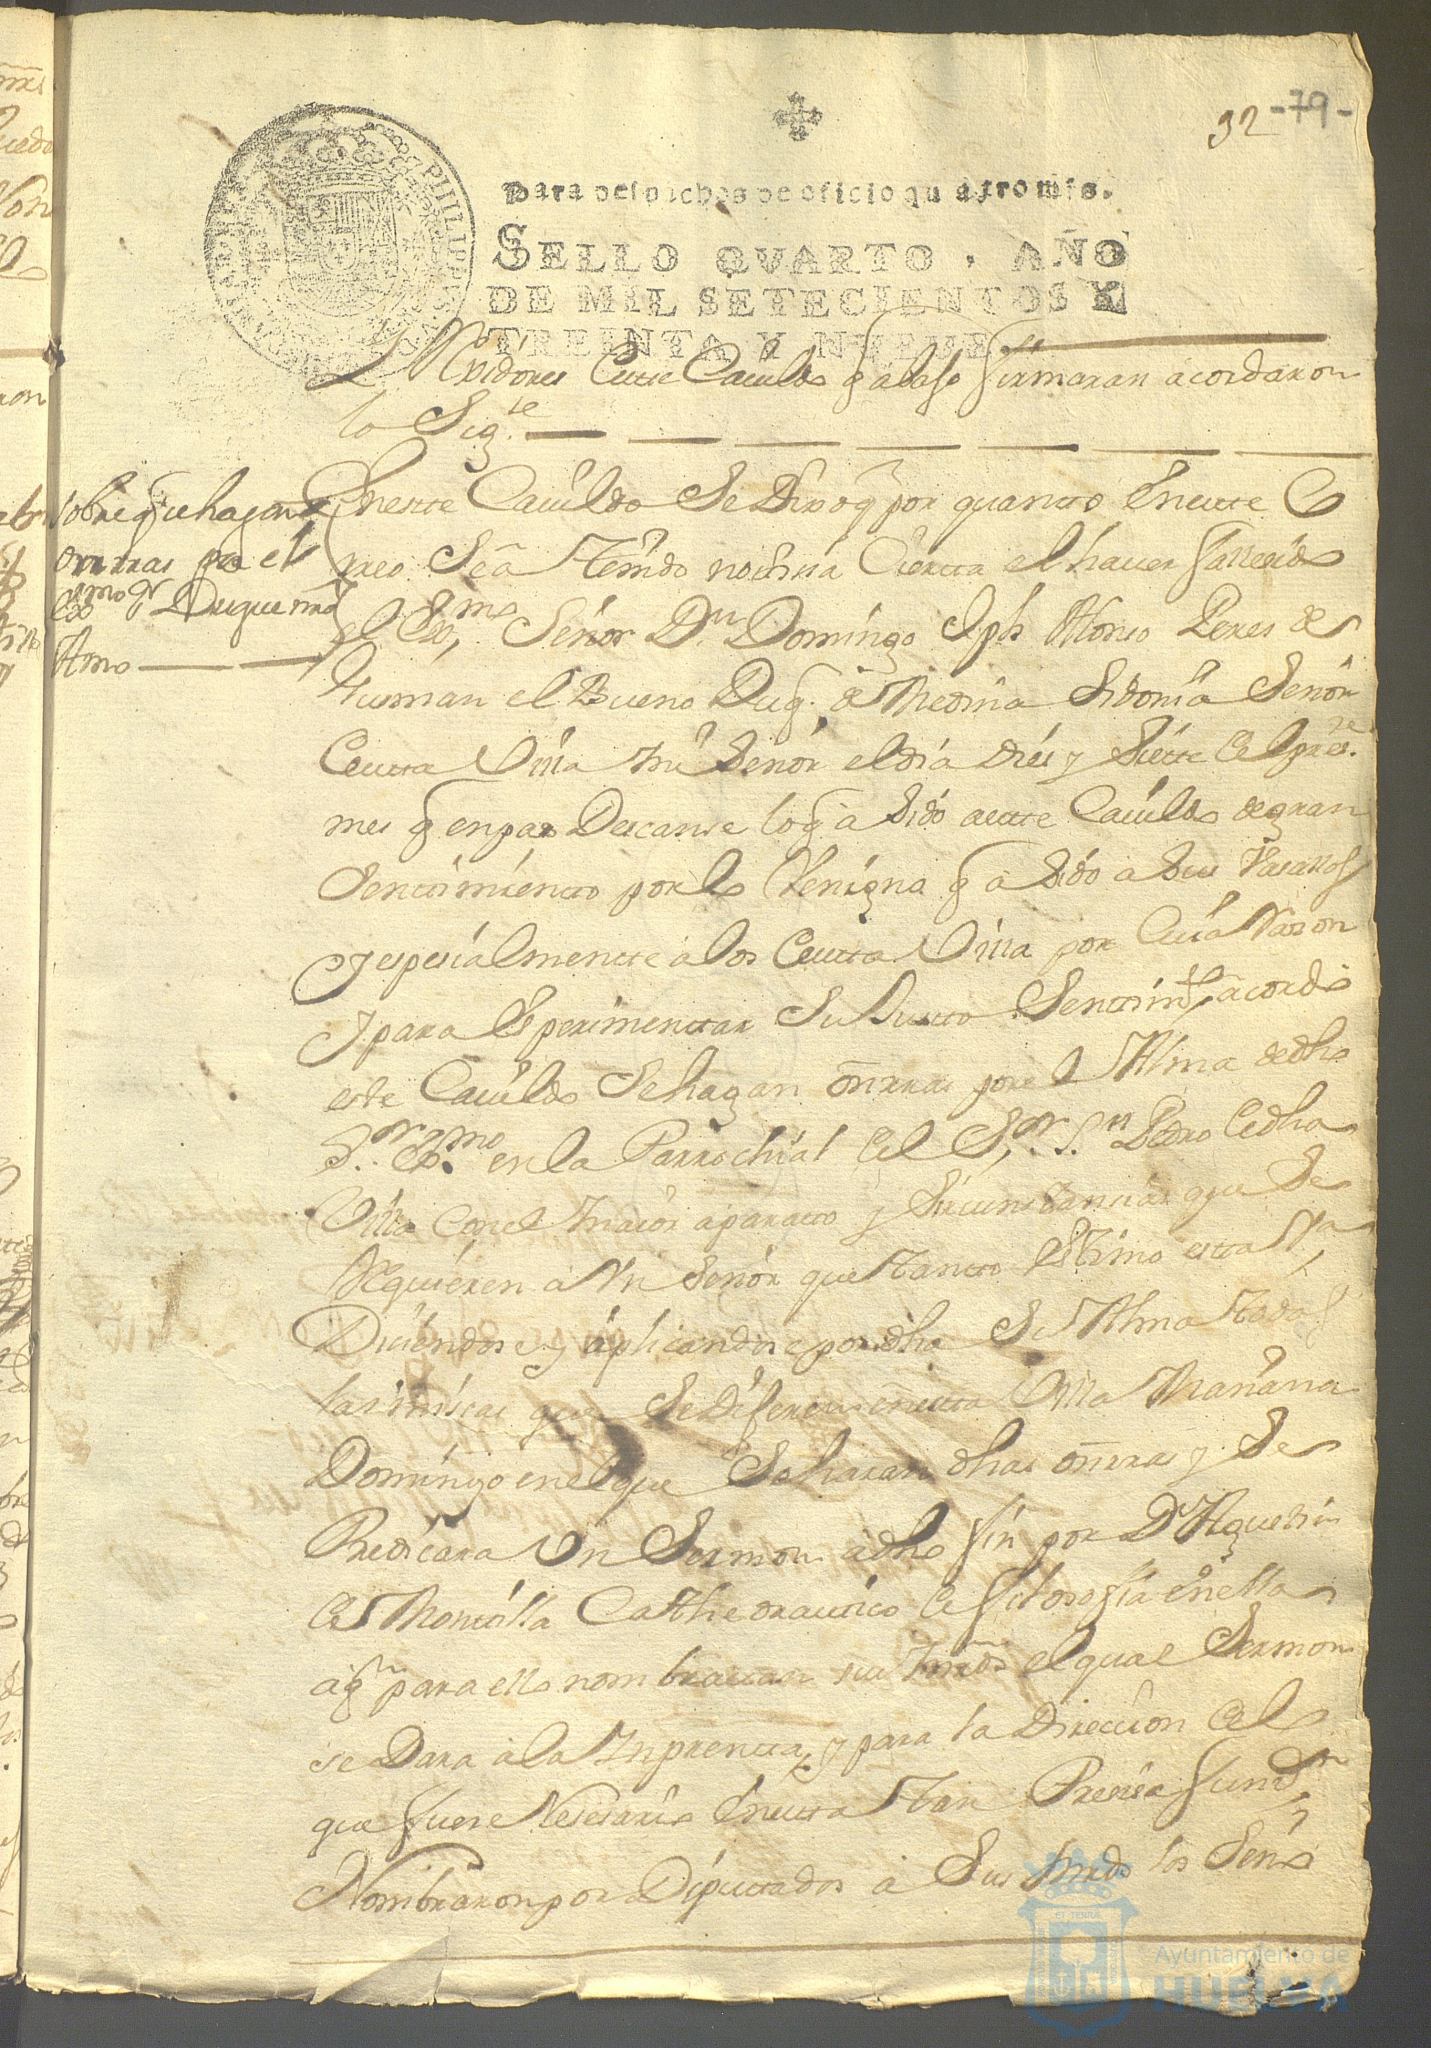 92 -79-
Para despachos de oficio quatro mrs.
SELLO QVARTO, AÑO
DE MIL SETECIENTOS Y
TREINTA Y NUEUE
PHILIPPVS
Rexidores de este Cauildo q abaso firmaran acordaron
lo Sig.te
Sobre q se hagan
onrras por el
Exmo Sr Duque mi
Amo
En este Cauildo Se Dixo q por quanto En este Co
rreo Se a Tenido noticia Cierta el hauer fallecido
el Exmo, Señor Dn Domingo Jph Alonso Peres de
Gusman el Bueno Duq. de Medina Sidonia Señor
de esta Villa mi Señor el dia dies y Siete del pres.te
mes q en paz Descanse lo q a Sido a este Cauildo de gran
Sentimiento por lo Venigno q a Sido a Sus Vasallos
y espesialmente a los de esta Villa por Cuia Rason
y para Esperimentar Su Justo Sentim.to acordo
este Cauildo Se hagan onrras por el Alma de dho
S.or Ex.mo en la Parrochial del S.or S.n Pedro de dha
Villa Con el maior aparato y Sircunstancias que Se
Requieren a Un Señor que tanto Estimo esta Va
Diciendose y aplicandose por dha Su Alma todas
las misas que Se Dijeren en esta Villa Mañana
Domingo en el que Se haran dhas onrras y Se
Predicara Un Sermon a dho fin por Dn Agustin
de Montilla Cathedratico de filosofia En ella
a qn para ello nombrauan sus mrds el qual Sermon
se Dara a la Inprenta, y para la Direccion del
que fuere Nesesario En esta tan Presisa funs.n
Nombraron por Diputados a Sus mrds los Señs
Ayuntamiento de
HUELVA